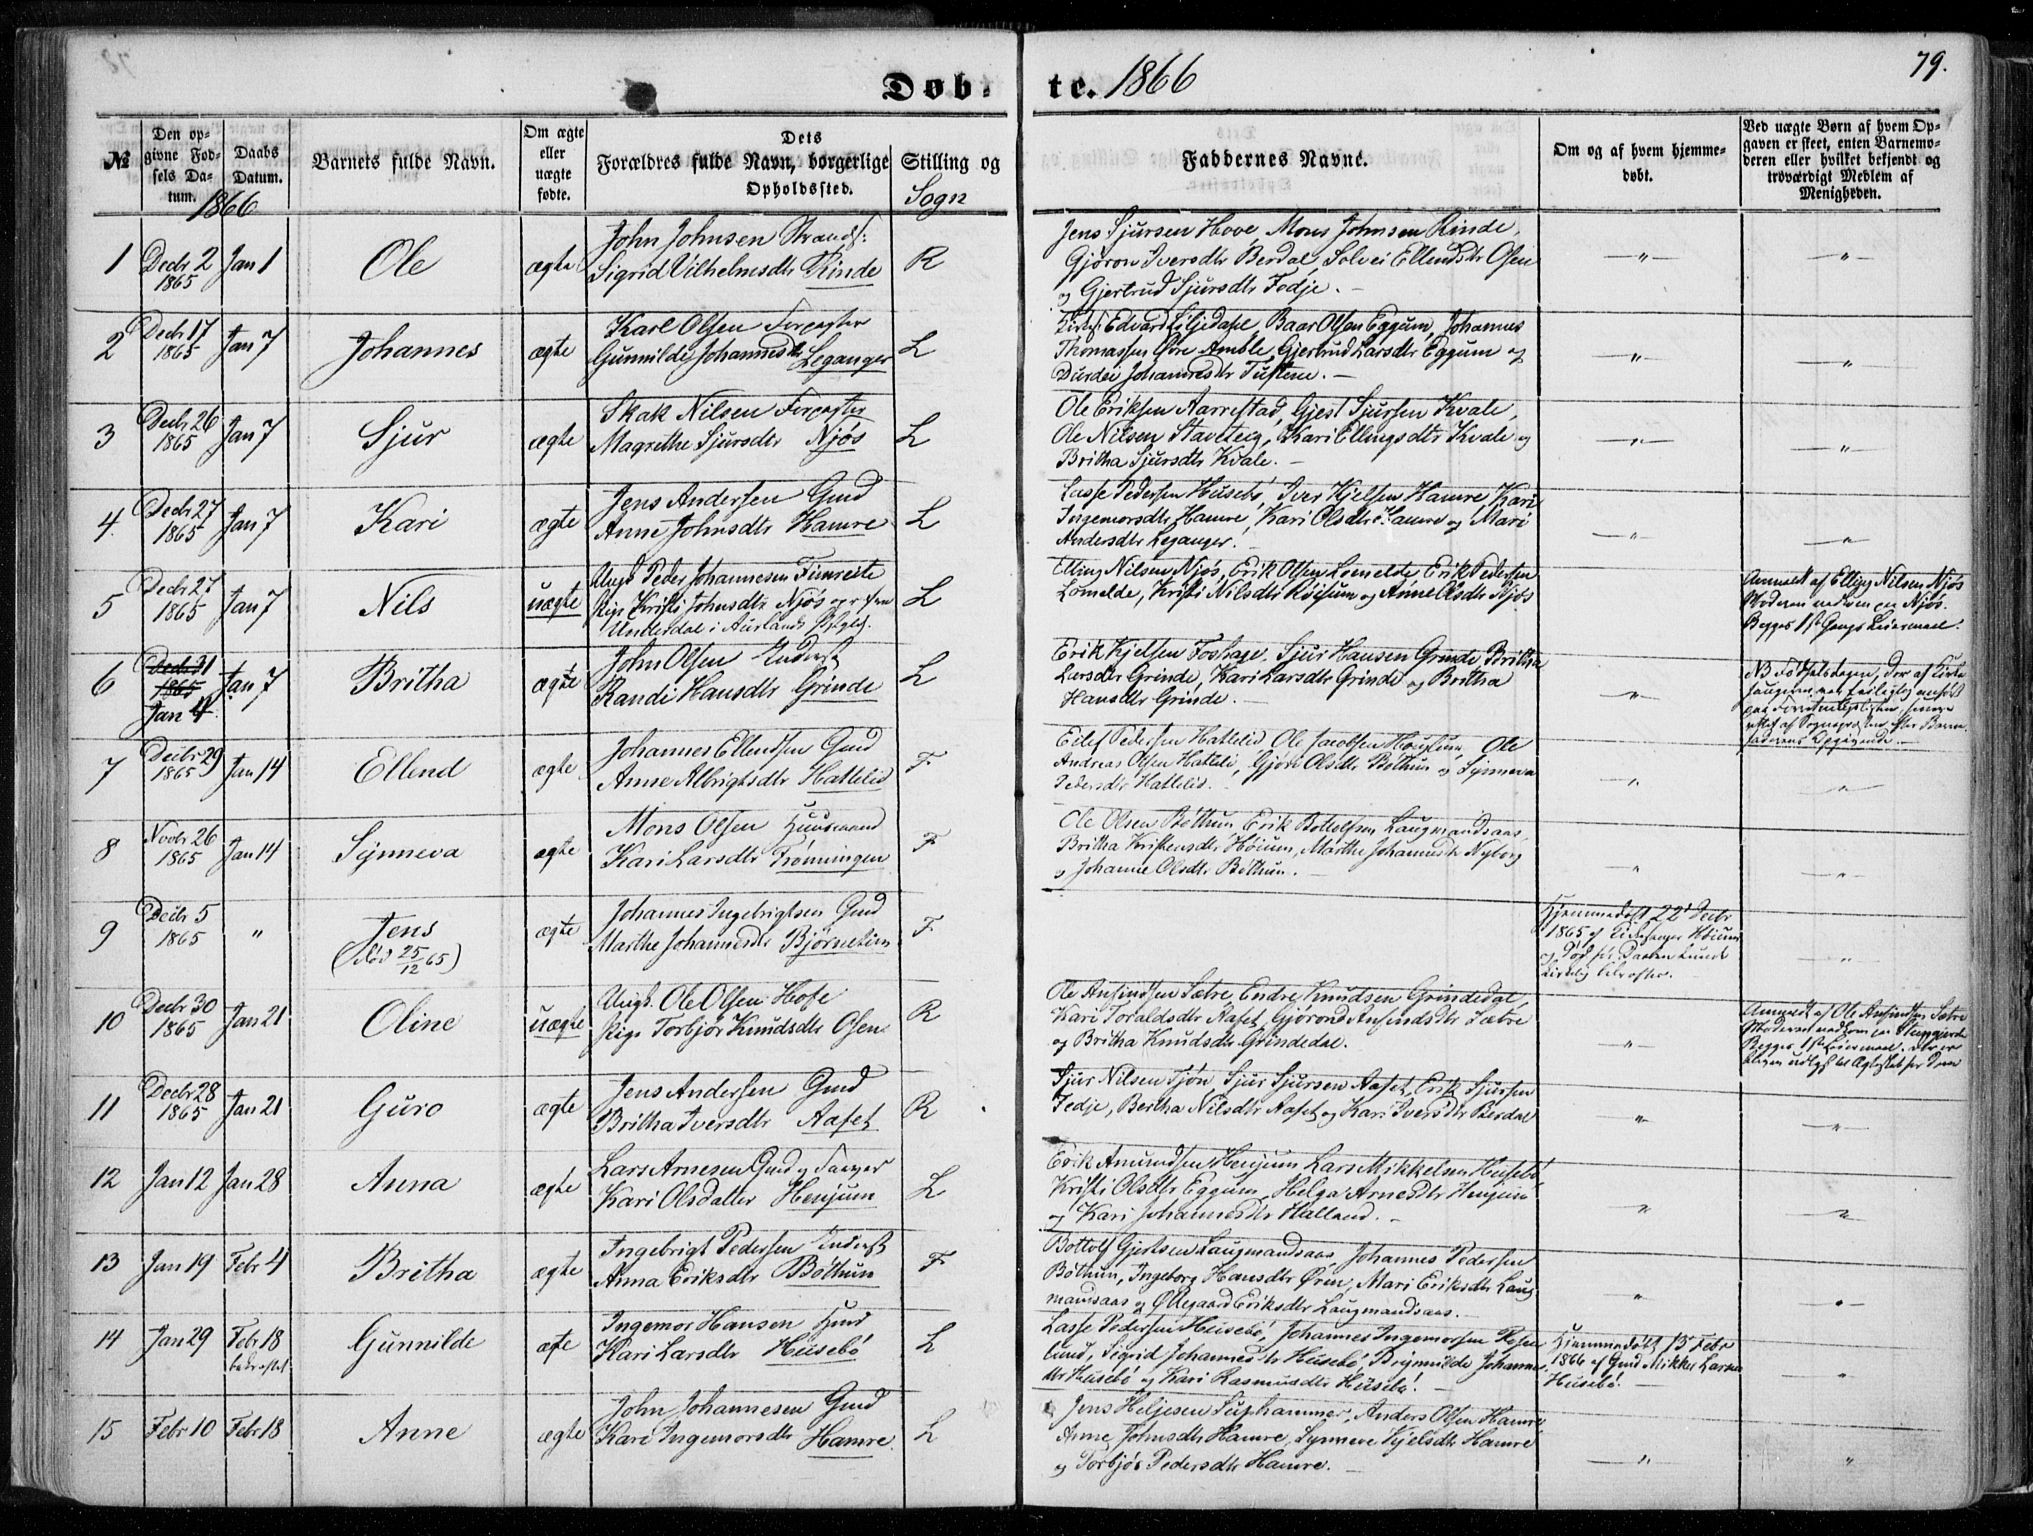 Døb- te. 1866
79.
№
Den opgivne Fødsels Datum.
Daabs Datum.
Barnets fulde Navn.
Om ægte eller uægte fødte.
Dets Forældres fulde Navn, borgerlige Stilling og Opholdssted.
Sogn
Faddernes Navne.
Om og af hvem hjemmedøbt.
Ved uægte Børn af hvem Opgaven er skeet, enten Barnemoderen eller hvilket bekjendt og troværdigt Medlem af Menigheden.
1866
1 Decbr 2 1865 Jan 1 Ole ægte
John Johnsen Strands:
Sigrid Vilhelmsdtr Rinde R
Jens Sjursen Hove, Mons Johnsen Rinde,
Gjøron Iversdtr Berdal, Solvei Ellendsdtr Osen
og Gjertrud Sjursdtr Fedje. —
2 Decbr 17 1865 Jan 7 Johannes ægte
Karl Olsen
Gunnilde Johannesdtr Leganger L
Edvard Liljedahl, Baar Olsen Eggum, Johannes
Thomassen Øvre Amble, Gjertrud Larsdtr Eggum og
Durdei Johannesdtr Tuftene. —
3 Decbr 26 1865 Jan 7 Sjur ægte
Skak Nilsen
Magrethe Sjursdtr Njøs L
Ole Eriksen Aarrestad, Gjest Sjursen Kvale,
Ole Nilsen Staveteig, Kari Ellingsdtr Kvale og
Britha Sjursdtr Kvale. —
4 Decbr 27 1865 Jan 7 Kari ægte
Jens Andersen Gmd
Anne Johnsdtr Hamre L
Lasse Pedersen Husebø, Iver Kjelsen Hamre, Kari
Ingemorsdtr Hamre, Kari Olsdtr Hamre og Mari
Andersdtr Leganger.
5 Decbr 27 1865 Jan 7 Nils uægte
Ungk Peder Johannesen Fimreite
Pige Kristi Johnsdtr Njøs
Underdal i Aurlands L
Elling Nilsen Njøs, Erik Olsen Lomelde, Erik Pedersen
Lomelde, Kristi Nilsdtr Røisum og Anne Olsdtr Njøs
Anmeldt af Elling Nilsen Njøs
Moderen Njøs.
Begges 1ste Gangs Leiermaal.
6 Decbr 31 1865 Jan 4 Jan 7 Britha ægte
John Olsen Inderst
Randi Hansdtr Grinde L
Erik Kjelsen Foshage, Sjur Hansen Grinde, Britha
Larsdtr Grinde, Kari Larsdtr Grinde og Britha
Hansdtr Grinde. —
NB Fødselsdagen, der af Kirke
7 Decbr 29 1865 Jan 14 Ellend ægte
Johannes Ellendsen Gmd
Anne Albrigtsdtr Hatlelid F
Eilef Pedersen Hatlelid, Ole Jacobsen Ole
Andreas Olsen Hatleli, Gjøri Olsdtr Bøthun og Synneva
Pedersdtr Hatlelid.
8 Novbr 26 1865 Jan 14 Synneva ægte
Mons Olsen Huusmand
Kari Larsdtr Frønningen F
Ole Olsen Bøthun, Erik Bottolfsen Laugmandsaas,
Britha Kristensdtr Høium, Marthe Johannesdtr Nyborg
og Johanne Olsdtr Bøthun.
9 Decbr 5 1865 " Jens
(død 25/12 65) ægte
Johannes Ingebrigtsen Gmd
Marthe Johannesdtr Bjørnetun F
Hjemmedøbt 22d Decbr
1865 af Kirkesanger Høium
og død før Daaben kunde
10 Decbr 30 1865 Jan 21 Oline uægte
Ungk. Ole Olsen Hofe
Pige Torbjør Knudsdtr Osen R
Ole Ansindsen Sætre, Endre Knudsen Grindedal,
Kari Toraldsdtr Aaset, Gjørond Ansindsdtr Sætre
og Britha Knudsdtr Grindedal.
Anmeldt af Ole Ansindsen Sætre
Begges 1ste Leiermaal.
11 Decbr 28 1865 Jan 21 Guro ægte
Jens Andersen Gmd
Britha Iversdtr Aaset R
Sjur Nilsen Tjøn, Sjur Sjursen Aaset, Erik Sjursen
Fedje, Bertha Nilsdtr Aaset og Kari Iversdtr Berdal
12 Jan 12 Jan 28 Anna ægte
Lars Arnesen Gmd og
Kari Olsdatter Henjum L
Erik Amundsen Henjum, Lars Mikkelsen Husebø,
Kristi Olsdtr Eggum, Helga Arnesdtr Henjum
og Kari Johannesdtr Halland. —
13 Jan 19 Febr 4 Britha ægte
Ingebrigt Pedersen Inderst
Anna Eriksdtr Bøthun F
Bottolf Gjertsen Laugmandsaas, Johannes Pedersen
Bøthun, Ingeborg Hansdtr Øren, Mari Eriksdtr Laug
mandsaas og Ollegaard Eriksdtr Laugmandsaas.
14 Jan 29 Febr 18 bekræftet Gunnilde ægte
Ingemor Hansen
Kari Larsdtr Husebø L
Lasse Pedersen Husebø, Johannes Ingemorsen Rosen
lund, Sigrid Johannesdtr Husebø, Brynnilde Johannes
dtr Husebø og Kari Rasmusdtr Husebø. —
Hjemmedøbt 13 Febr
1866 af Gmd Mikkel Larsen
Husebø.
15 Febr 10 Febr 18 Anne ægte
John Johannesen Gmd
Kari Ingemorsdtr Hamre L
Jens Heljesen Suphammer, Anders Olsen Hamre,
Anne Johnsdtr Hamre, Synneve Kjelsdtr Hamre
og Torbjør Pedersdtr Hamre. —